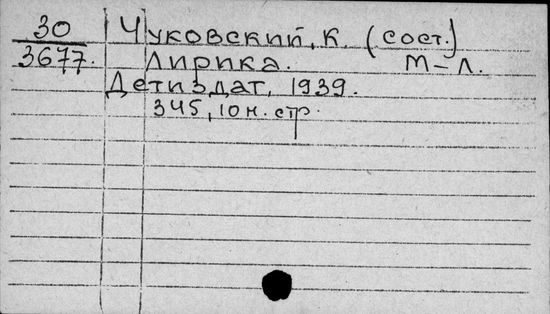 30 Чуковский, К. (сост.)
3677. Лирика. М-Л.
Детиздат, 1939.
345, 10 н. стр.